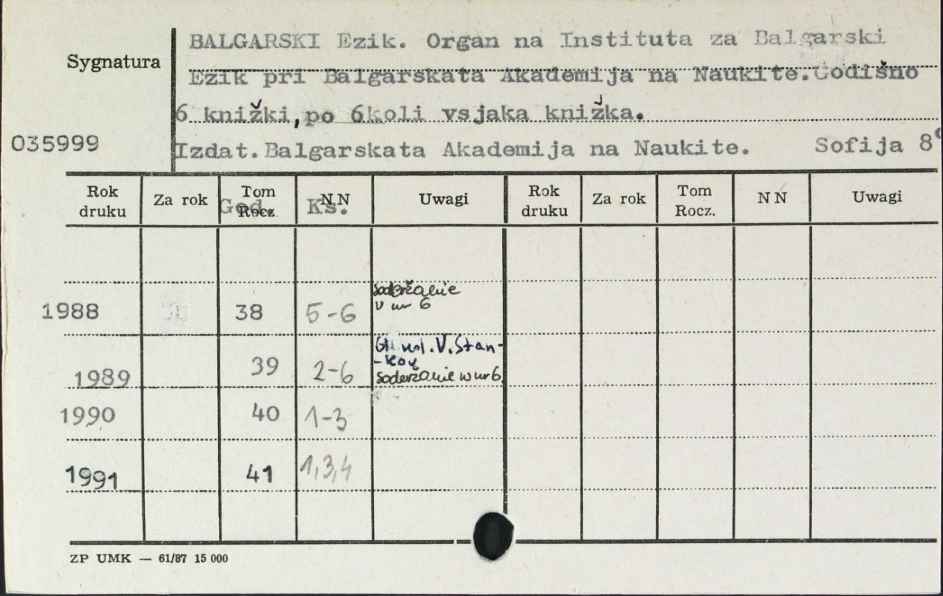 BALGARSKI Ezik. Organ na Instituta za Balgarski
Sygnatura
Ezik pri Balgarskata Akademija na Naukite. Godišno
6 knižki, po 6 koli vsjaka knižka.
035999
Izdat. Balgarskata Akademija na Naukite. Sofija 8°
Rok druku Za rok Tom Rocz. God. NN Ks. Uwagi Rok druku Za rok Tom Rocz. NN Uwagi
1988 38 5-6 soderžanie
v nr 6
1989 39 2-6 Gł. V. Stan-
-kov
soderzanie w nr 6
1990 40 1-3
1991 41 1,3,4
ZP UMK — 61/87 15 000